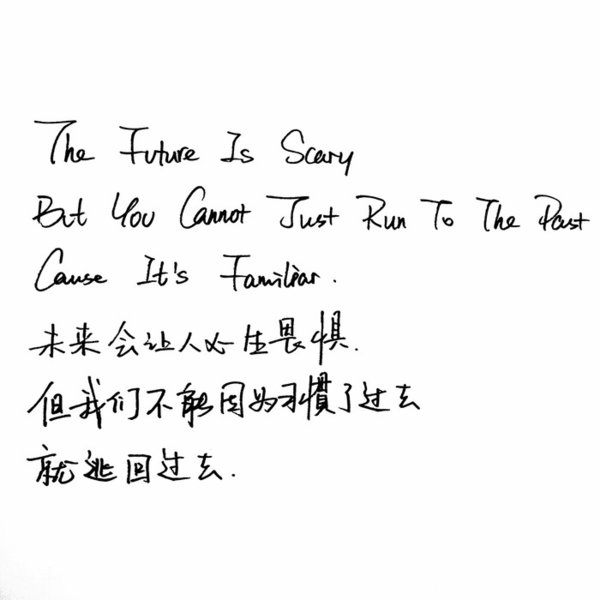 The Future Is Scary
But You Cannot Just Run To The Past
Cause It's Familiar.
未来会让人心生畏惧.
但我们不能因为习慣了过去
就逃回过去.